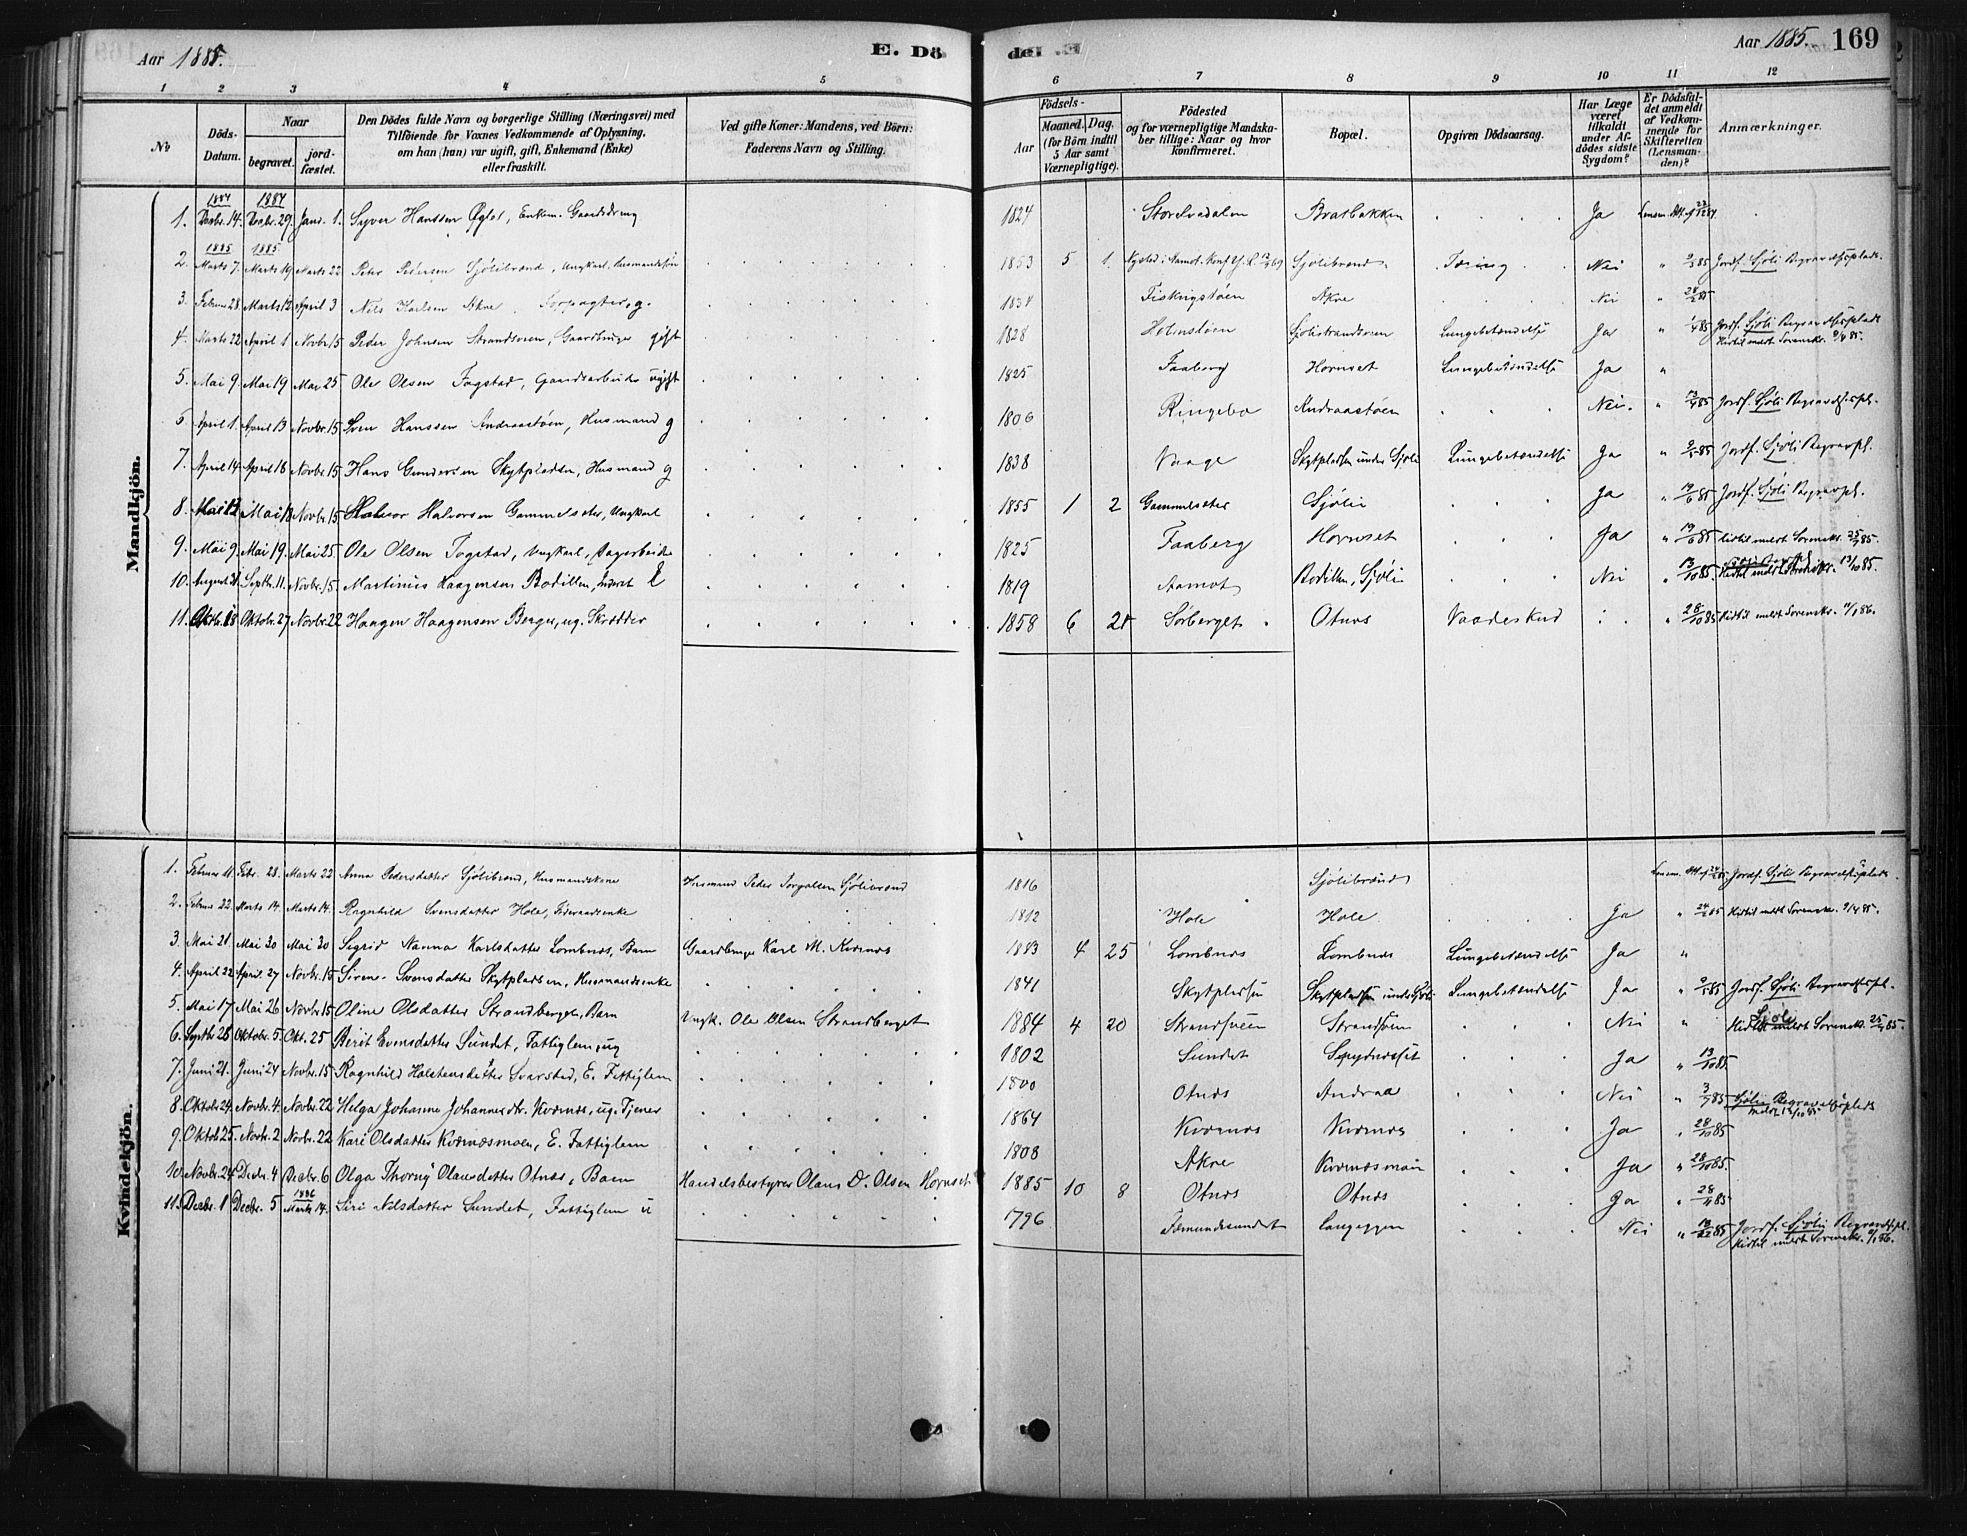 Aar 1885. E. Dö
de. Aar 1885. 169
1 2 3 4 5 6 7 8 9 10 11 12
No
Döds-Datum.
Naar
begravet.
jord-fæstet.
Den Dödes fulde Navn og borgerlige Stilling (Næringsvei) med
Tilföiende for Voxnes Vedkommende af Oplysning,
om han (hun) var ugift, gift, Enkemand (Enke)
eller fraskilt.
Ved gifte Koner: Mandens, ved Börn:
Faderens Navn og Stilling.
Födsels-
Aar
Maaned. Dag.
(for Börn indtil
5 Aar samt
Værnepligtige).
Födested
og for værnepligtige Mandska-
ber tillige: Naar og hvor
konfirmeret.
Bopæl.
Opgiven Dödsaarsag.
Har Læge
været
tilkaldt
under Af-
dödes sidste
Sygdom?
Er Dödsfal-
det anmeldt
af Vedkom-
mende for
Skifteretten
(Lensman-
den)?
Anmærkninger.
Mandkjön.
1884 1884
1. Decbr. 14. Decbr. 29. Janr. 1. Syver Hanssen Øglot, Enkem. Gaardbrug 1824 Storelvedalen Bratbakken Ja Lensm. Att. af
1885 1885
2. Marts 7. Marts 19 Marts 22 Peter Pedersen Sjölibrænd, Ungkarl, Husmandssön 1853 5 1. Sjölibrænd Tæring Nei " 85 Jordf. Sjöli Begravelsesplads.
3. Februar 28. Marts 12 April 3 Nils Karlsen Akre g. 1834 Fiskvigstöen Akre Nei " 85
4. Marts 22 April 1 Novbr. 15 Peder Johnsen Strandsveen, Gaardbruger gift 1828 Holmstöen Sjölistrandsveen Lungebetændelse Ja " 85 Jordf. Sjöli Begravelsesplads
5. Mai 9. Mai 19 Mai 25 Ole Olsen Fogstad, Gaardsarbeider ugift 1825 Faaberg Hornset Lungebetændelse Ja "
6 April 1. April 13 Novbr. 15 Sven Hanssen Andraastöen, Husmand g 1806 Ringebo Andraastöen Nei. " 85 Jordf. Sjöli Begravelsespl.
7. April 14 April 16 Novbr. 15 Hans Gundersen Skytpladsen, Husmand g 1838 Vaage Skytpladsen under Sjöli Lungebetændelse Ja " 85 Jordf. Sjöli Begravpl.
8. Mai 12 Mai 18 Novbr. 15 Halvor Halvorsen Gammelsæter, Ungkarl 1855 1 2 Gammelsæter Sjöli Ja " 85 Jordf. Sjöli Begravpl.
9. Mai 9. Mai 19. Mai 25. Ole Olsen Fogstad, Ungkarl, Dagarbeider 1825 Faaberg Hornset Ja " 85 Kistil meldt Sorenskr. 85.
10. August 21 Septb. 11. Novbr. 15. Martinus Haagensen Bodillen, E 1819 Aamot Bodillen, Sjöli Nei " 13/10 85. Kistil meldt Sorenskr. 13/10 85.
11. Oktbr. 18 Oktobr. 27 Novbr. 22 Haagen Haagensen Berger, ug. Skrædder 1858 6 21 Sörberget Otnes Vaadeskud " 28/10 85 Kistil meldt Sorenskr. 86.
Kvindekjön.
1. Februar 11. Febr. 28. Marts 22 Anna Pedersdatter Sjölibrænd, Husmandskone Husmand Peder Torgalsen Sjölibrænd 1816 Sjölibrænd Lensm. Att. af 85 Jordf. Sjöli Begravelsesplads.
2. Februar 22. Marts 14. Marts 14. Ragnhild Svensdatter Hole, Föderaadsenke 1812 Hole Hole Ja " 85 Kistil meldt Sorenskr. 85.
3. Mai 21. Mai 30 Mai 30 Sigrid Nanna Karlsdatter Lombnæs, Barn Gaardbruger Karl M. Kværnes 1883 4 25 Lombnæs Lombnæs Lungebetændelse Ja "
4. April 22 April 27 Novbr. 15 Siren Svensdatter Skytpladsen, Husmandsenke 1841 Skytpladsen Skytpladsen under Sjöli Lungebetændelse Ja " 85 Jordf. Sjöli Begravelsespl.
5. Mai 17. Mai 26 Novbr. 15 Oline Olsdatter Strandberget, Barn Ungk. Ole Olsen Strandberget 1884 4 20 Strandsveen Strandsveen Nei " Sjöli Kistil meldt Sorensk. 85.
6. Septbr. 28 Oktobr. 5 Okt. 25 Berit Evensdatter Sundet, Fattiglem, ug 1802 Sundet Ja " 13/10 85.
7. Juni 21. Juni 24 Novbr. 15 Ragnhild Holstensdatter Svarstad, E. Fattiglem 1800 Otnes Andraa Nei " 85 Sjöli Begravelsesplads
8. Oktobr. 24. Novbr. 4. Novbr. 22 Helga Johanne Johannesdtr. Kværnes, ug. Tjener 1864 Kværnes Kværnes Ja " 28/10 85
9. Oktob. 25. Novbr. 2 Novbr. 22 Kari Olsdatter Kværnæsmoen, E. Fattiglem 1808 Akre Kværnæsmoen Ja " 28/10 85.
10. Novbr. 24. Decbr. 4 Decbr. 6 Olga Thorny Olausdatter Otnes, Barn Handelsbestyrer Olaus D. Olsen Hornset 1885 10 8 Otnes Otnes Ja " 28 85
11. Decbr. 1 Decbr. 5 1886 Marts 14. Siri Nilsdatter Sundet, Fattiglem u 1796 Fæmundssundet Langeggen Nei " 85 Jordf. Sjöli Begravelsespl.
Kistil meldt Sorenskr. 86.